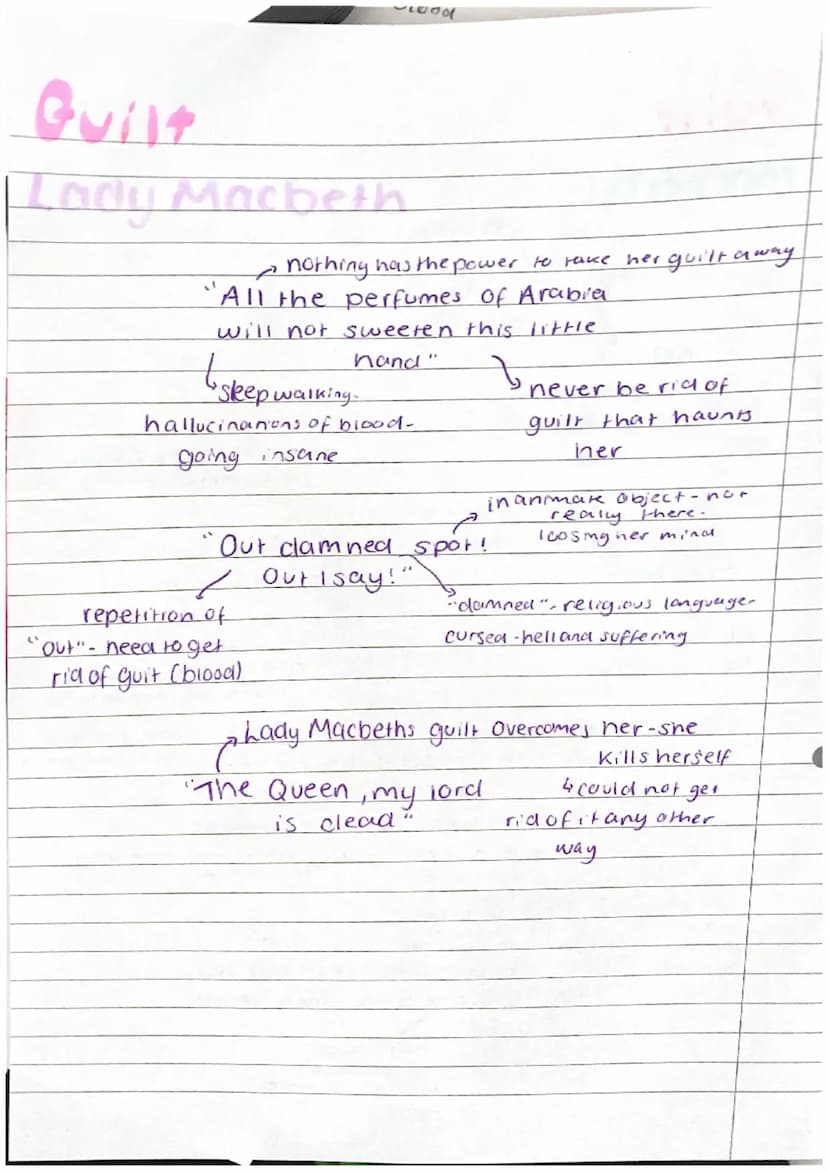 blood
Guilt
Lady Macbeth
nothing has the power to take her guilt away
"All the perfumes of Arabia
will not sweeten this little
hand"
sleepwalking-
hallucinations of blood-
going insane
never be rid of
guilt that haunts
her
inanimate object - not
really there.
loosing her mind
"Out damned spot!
Out I say!"
repetition of
"out" - need to get
rid of guit (blood)
"damned" - religious language-
cursed - hell and suffering
Lady Macbeths guilt overcomes her - she
kills herself
↳ could not get
rid of it any other
way
"The Queen, my lord
is dead"